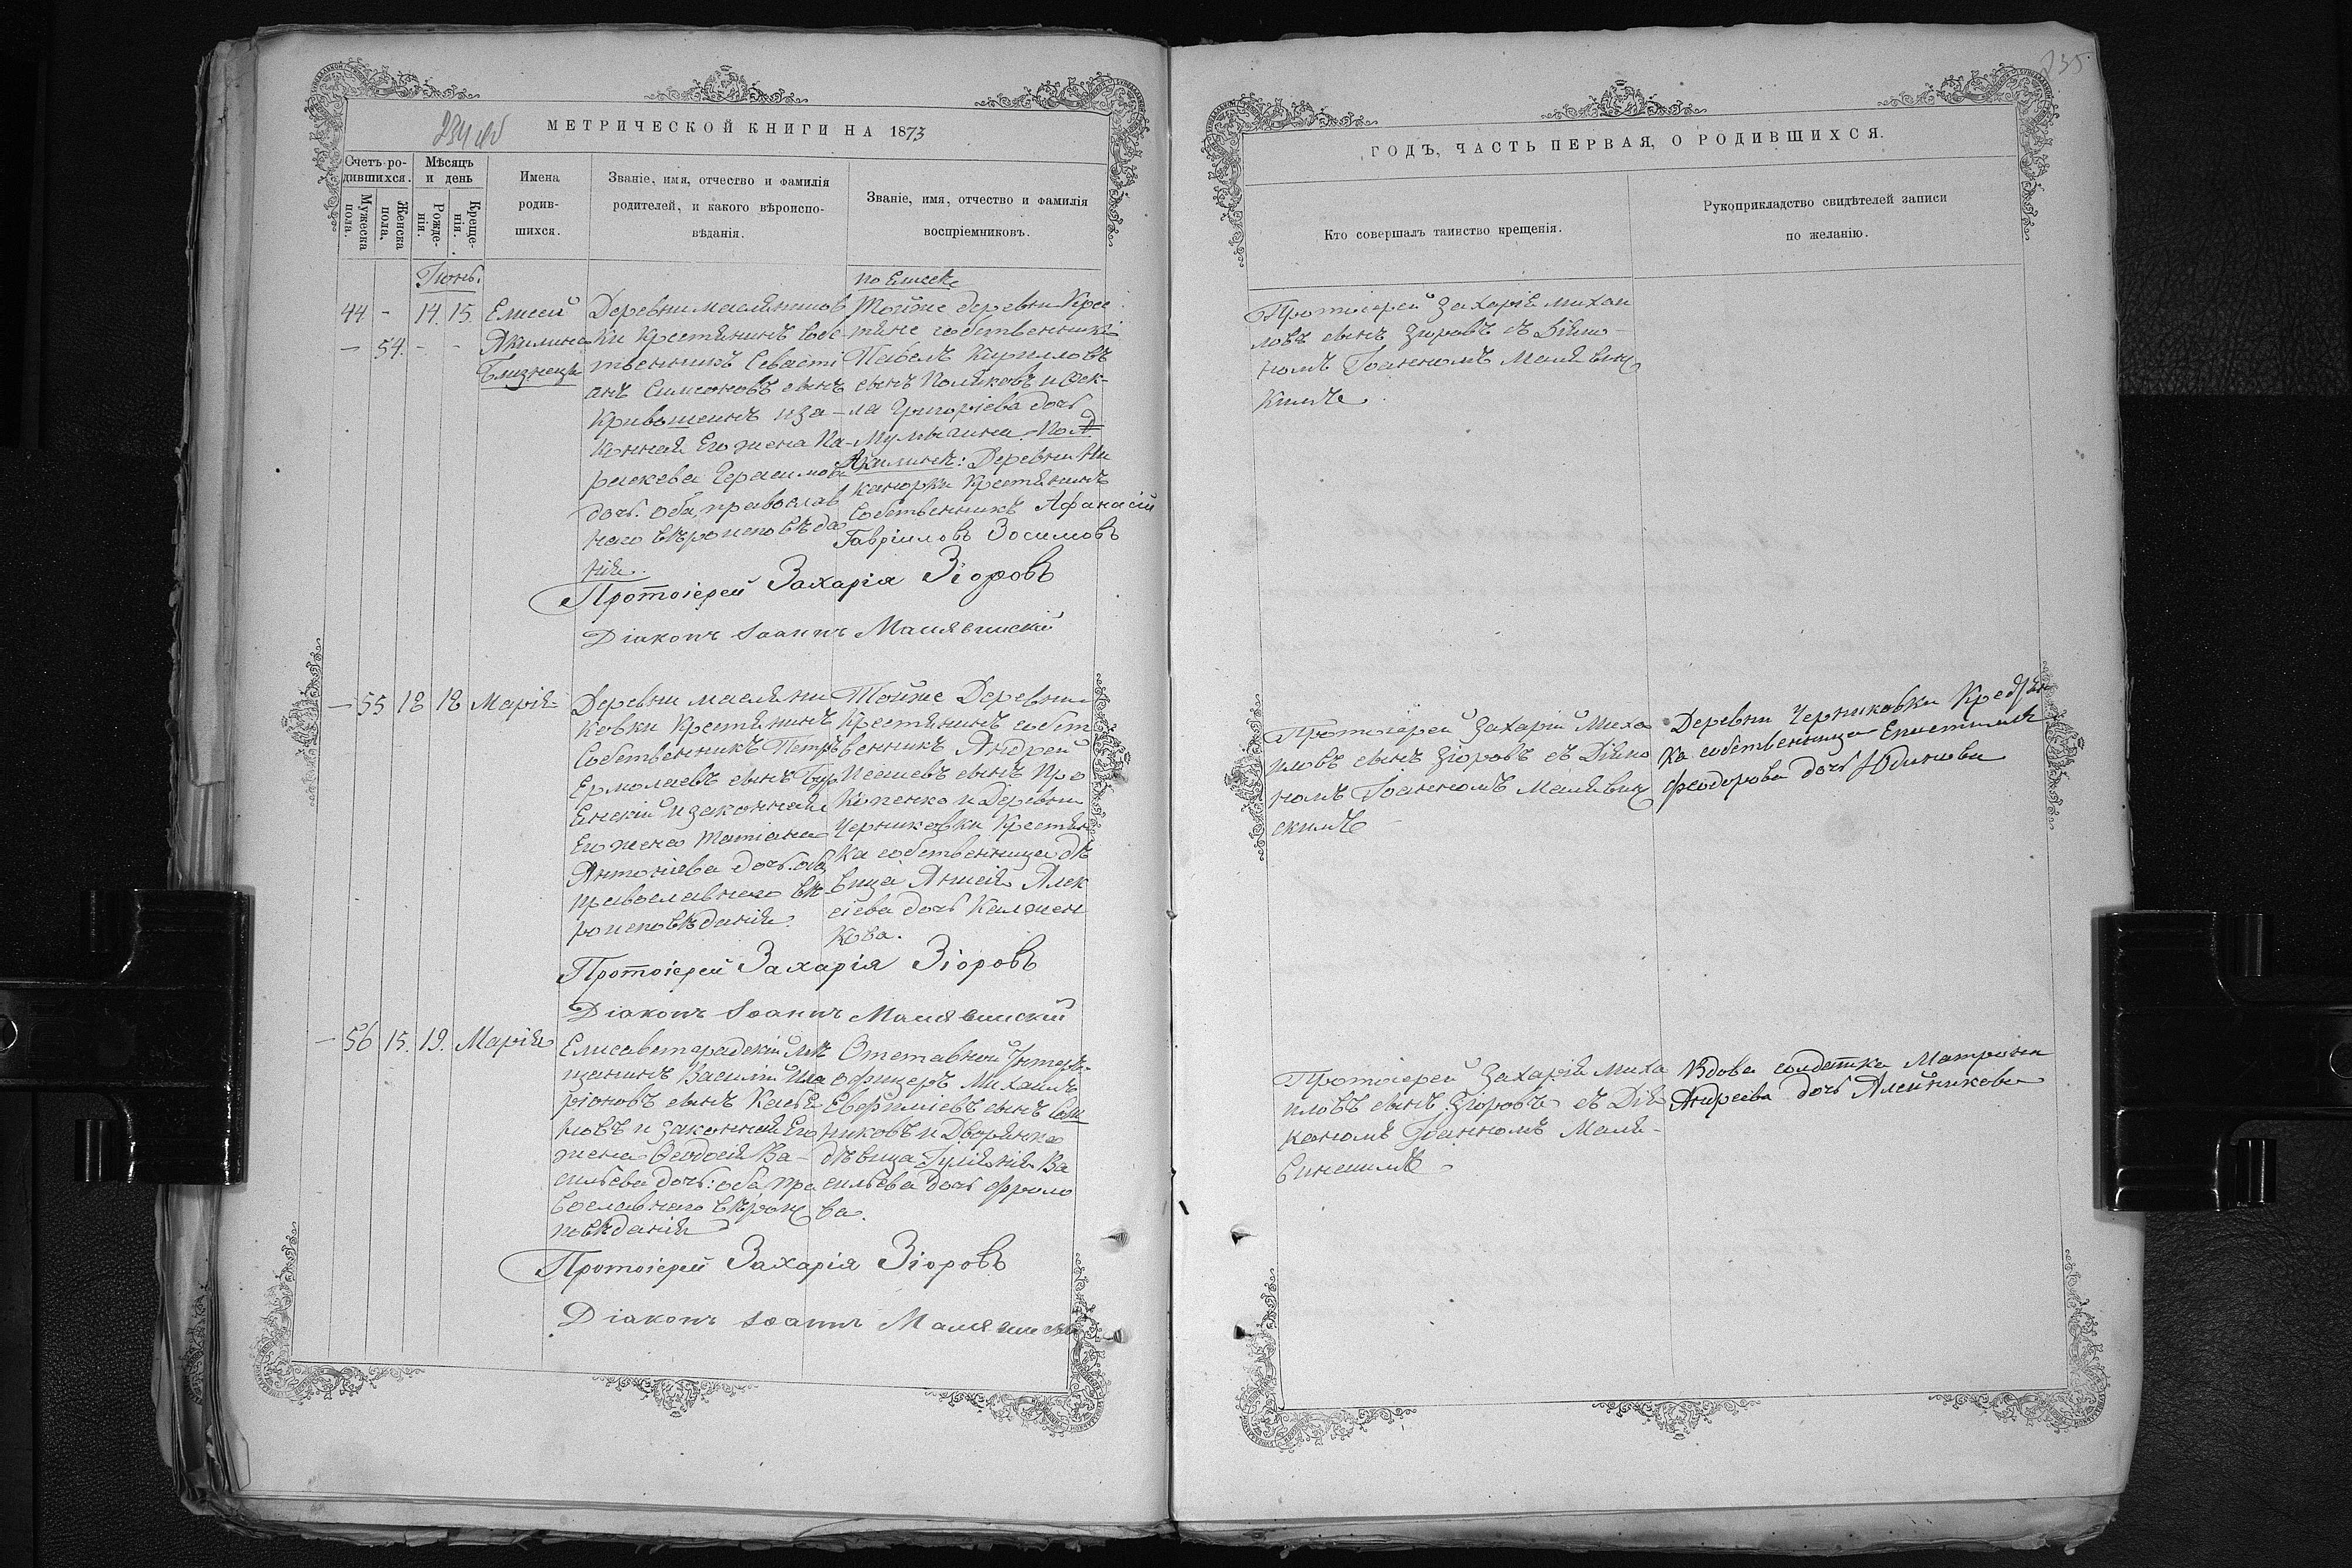 234 об
МЕТРИЧЕСКОЙ КНИГИ НА 1873
Счетъ ро-
дившихся.
Мужеска
пола.
Женска
пола.
Мѣсяцъ
и день
Рожде-
нія.
Креще-
нія.
Имена
родив-
шихся.
Званіе, имя, отчество и фамилія
родителей, и какого вѣроиспо-
вѣданія.
Званіе, имя, отчество и фамилія
воспріемниковъ.
Іюнь.
44 - 14. 15. Елисей
- 54. - - Акилина
Близнецы
Деревни Маслянников
ки Крестьянинъ Собс
твенникъ Севасті
анъ Симеоновъ сынъ
Кривошеинъ и за-
конная Его жена Па-
раскева Герасимова
дочь. оба православ
наго вѣроисповѣда
нія.
по Елисеѣ
Тойже деревни Крес
тяне собственники
Павелъ Кирилловъ
сынъ Поляковъ и Ѳек-
ла Григоріева дочь
По А
Акилинѣ: Деревни Ни
канорки Крестянинъ
Собственникъ Афанасій
Гавріиловъ Зосимовъ
Протоіерей Захарія Зіоровъ
Діаконъ Іоаннъ Малявинскій
- 55 18 18 Марія
Деревни Маслянни
ковки Крестянинъ
Собственникъ Петръ
Ермолаевъ сынъ Бур
Енскій и законная
Его жена Татіана
Антоніева дочь. оба
православнаго вѣ
роисповѣданія.
Тойже Деревни
Крестянинъ собст
венникъ Андрей
Исаиевъ сынъ Про
копенко и Деревни
Черниковки Крестян
ка собственница дѣ
вица Анисія Алек
сіева дочь Калжен
кова.
Протоіерей Захарія Зіоровъ
Діаконъ Іоаннъ Малявинскій
- 56 15. 19. Марія
Елисаветградскій Мѣ
щанинъ Василій Ила
ріоновъ сынъ Касья
новъ и законная Его
жена Ѳеодосія Ва-
сильева дочь: оба пра
вославнаго вѣроис
повѣданія
Отставной Унтеръ
офицеръ Михаилъ
Евфиміевъ сынъ
никовъ и Дворянка
дѣвица Іуліянія Ва
сильева дочь Фроло
ва.
Протоіерей Захарія Зіоровъ
Діаконъ Іоаннъ Малявинскій
235
ГОДЪ, ЧАСТЬ ПЕРВАЯ, О РОДИВШИХСЯ.
Кто совершалъ таинство крещенія.
Рукоприкладство свидѣтелей записи
по желанію.
Протоіерей Захарія Михаи
ловъ сынъ Зіоровъ съ Діяко
номъ Іоанномъ Малявинс
кимъ
Протоіерей Захарій Миха
иловъ сынъ Зіоровъ съ Діяко
номъ Іоанномъ Малявин
скимъ
Деревни Черниковки Крестян
ка собственница Епистимія
Феодорова дочь Юдинова
Протоіерей Захарія Миха
иловъ сынъ Зіоровъ съ Дія
кономъ Іоанномъ Маля-
винскимъ
Вдова солдатка Матрона
Андреева дочь Алейникова